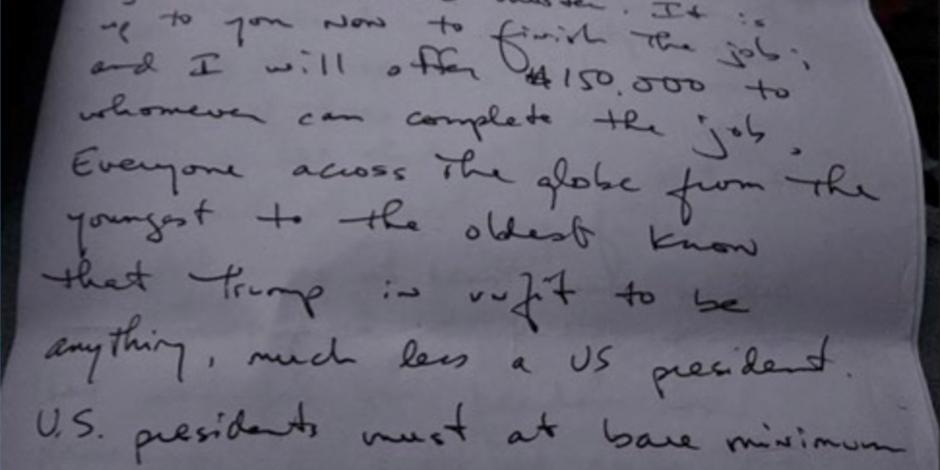 It is
up to you now to finish the job;
and I will offer $150,000 to
whomever can complete the job.
Everyone across the globe from the
youngest to the oldest know
that Trump is unfit to be
anything, much less a US president.
U.S. presidents must at bare minimum